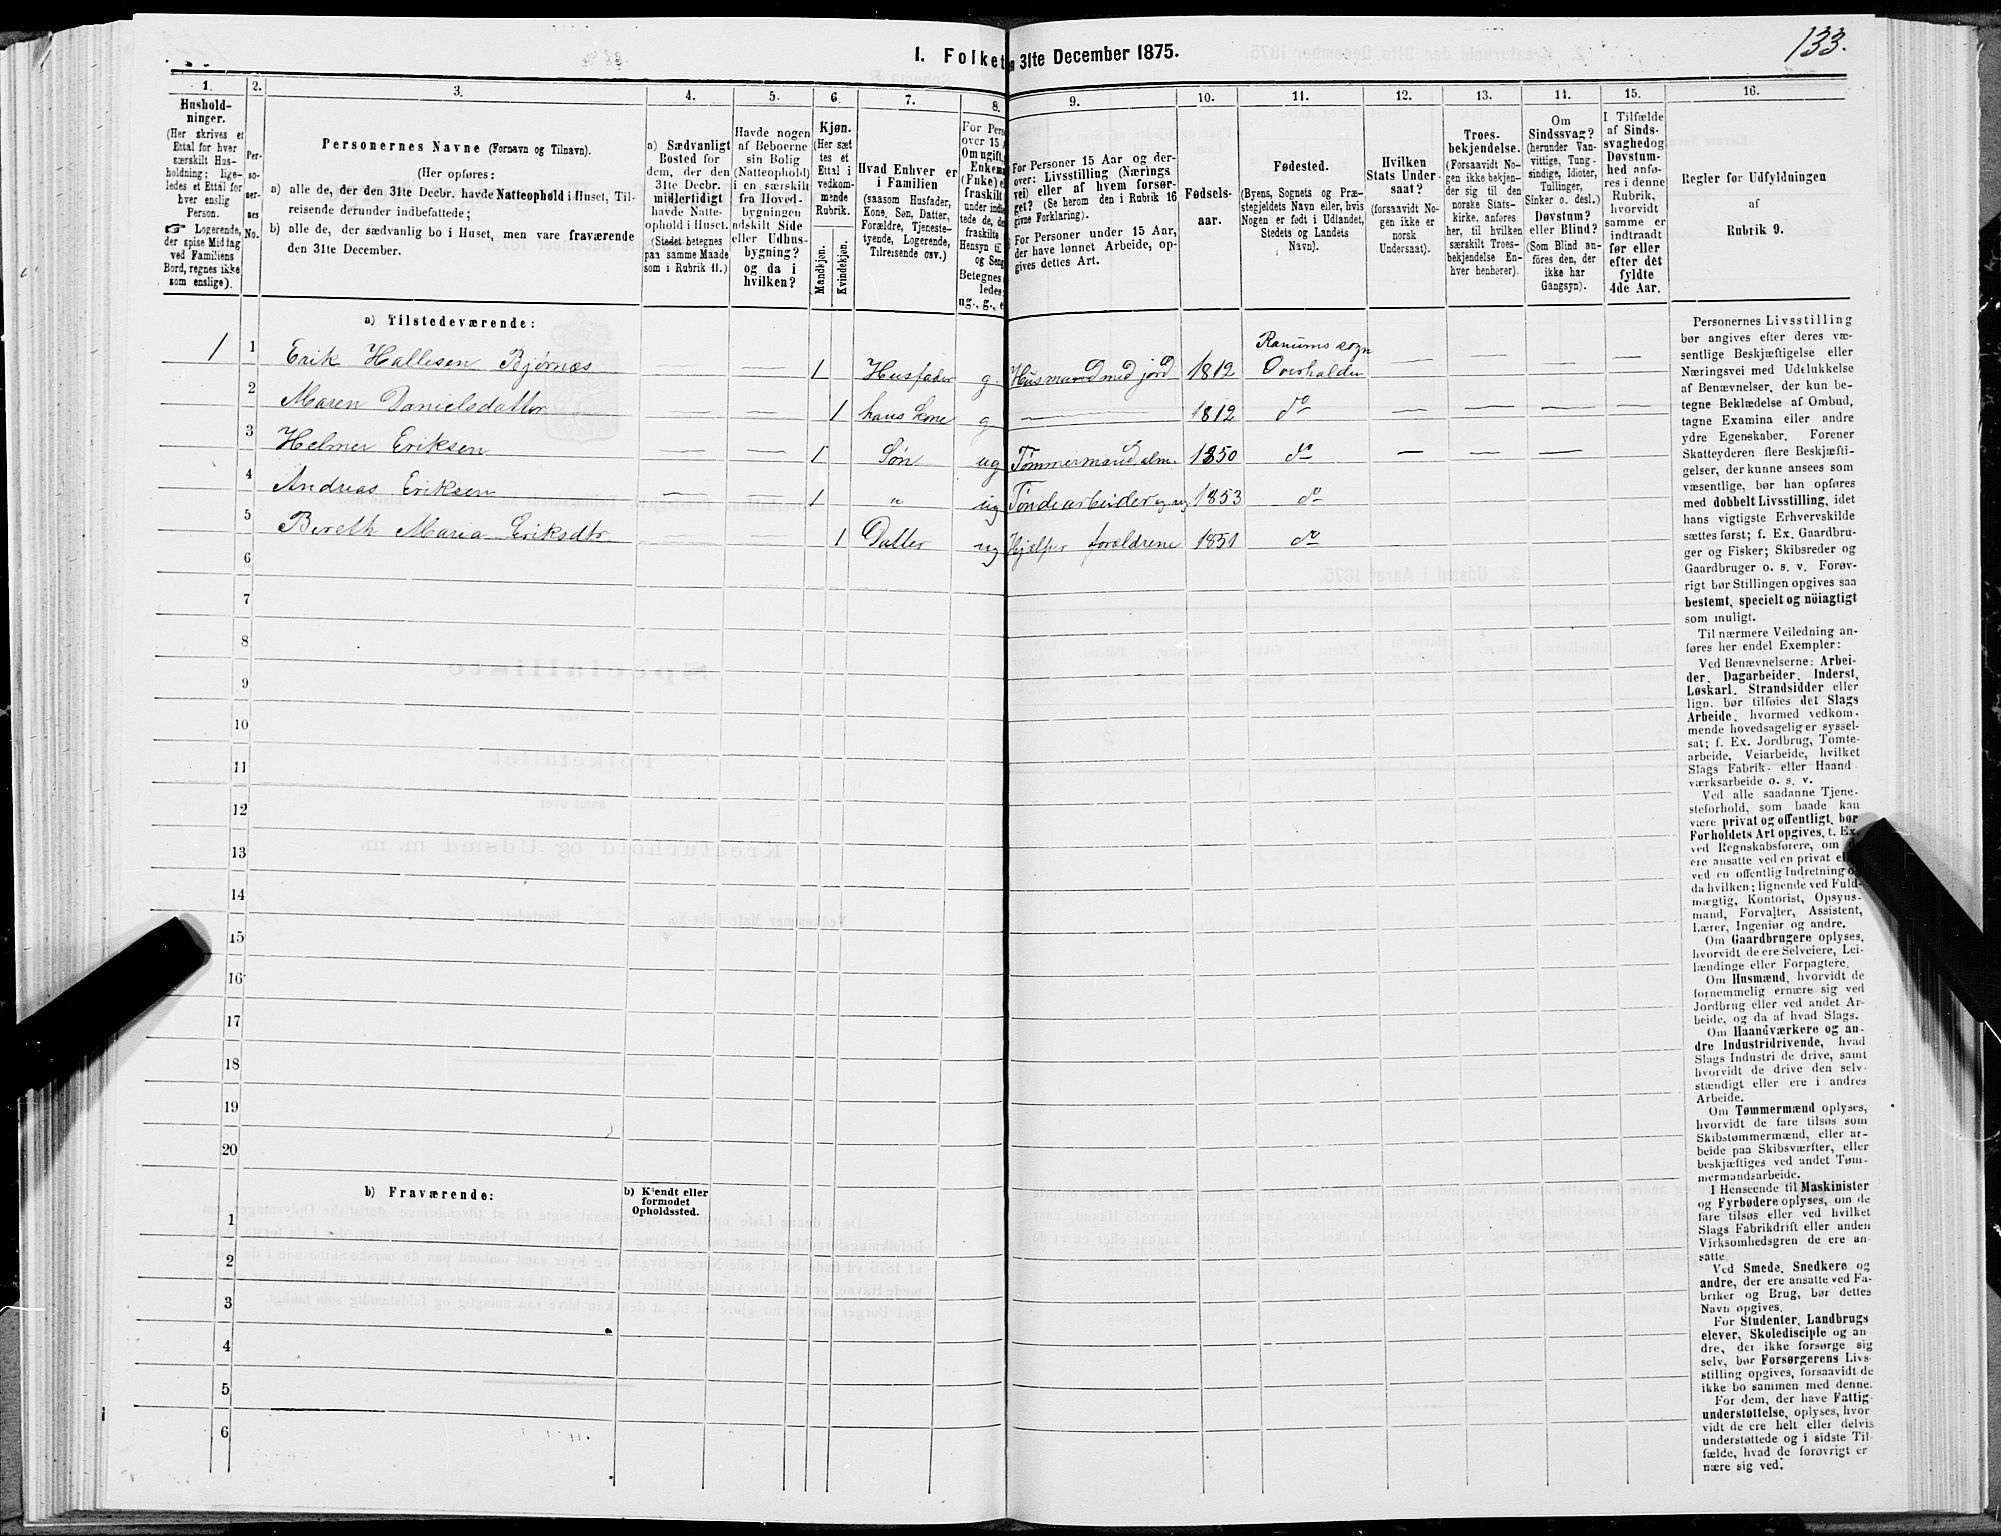 133.
I. Folket
n 31te December 1875.
1.
2.
3.
4.
5.
6.
7.
8.
9.
10.
11.
12.
13.
14.
15.
16.
Hushold-
ninger.
(Her skrives et
Ettal for hver
særskilt Hus-
holdning; lige-
ledes et Ettal for
hver enslig
Person.
☞ Logerende,
der spise Middag
ved Familiens
Bord, regnes ikke
som enslige).
Per-
so-
ner-
nes
No.
Personernes Navne (Fornavn og Tilnavn).
(Her opføres:
a) alle de, der den 31te Decbr. havde Natteophold i Huset, Til-
reisende derunder indbefattede;
b) alle de, der sædvanlig bo i Huset, men vare fraværende
den 31te December.
a) Sædvanligt
Bosted for
dem, der den
31te Decbr.
midlertidigt
havde Natte-
ophold i Huset.
(Stedet betegnes
paa samme Maade
som i Rubrik 11.)
Havde nogen
af Beboerne
sin Bolig
(Natteophold)
i en særskilt
fra Hoved-
bygningen
adskilt Side
eller Udhus-
bygning?
og da i
hvilken?
Kjøn.
(Her sæt
tes et
Ettal i
vedkom-
mende
Rubrik.
Mandkjøn.
Kvindekjøn.
Hvad Enhver er
i Familien
(saasom Husfader,
Kone, Søn, Datter,
Forældre, Tjeneste-
tyende, Logerende,
Tilreisende osv.)
For Pers
over 15 A
Om ugift,
Enkema
(Enke) e
fraskilt
under indbe
tede de, de
fraskilte
Hensyn til
og Seng
Betegnes
ledes:
ug., g., e
For Personer 15 Aar og der-
over: Livsstilling (Nærings
vei) eller af hvem forsør-
get? (Se herom den i Rubrik 16
givne Forklaring).
For Personer under 15 Aar,
der have lønnet Arbeide, op-
gives dettes Art.
Fødsels-
aar.
Fødested.
(Byens, Sognets og Præ-
stegjeldets Navn eller, hvis
Nogen er født i Udlandet,
Stedets og Landets
Navn).
Hvilken
Stats Under-
saat?
(forsaavidt No-
gen ikke er
norsk
Undersaat).
Troes-
bekjendelse.
(Forsaavidt No-
gen ikke bekjen-
der sig til den
norske Stats-
kirke, anføres
her, til hvilken
særskilt Troes-
bekjendelse En-
hver henhører).
Om
Sindssvag?
(herunder Van-
vittige, Tung-
sindige, Idioter,
Tullinger,
Sinker o. desl.)
Døvstum?
eller Blind?
(Som Blind an-
føres den, der
ikke har
Gangsyn).
I Tilfælde
af Sinds-
svaghed og
Døvstum-
hed anfø-
res i denne
Rubrik,
hvorvidt
samme er
indtraadt
før eller
efter det
fyldte
4de Aar.
Regler for Udfyldningen
af
Rubrik 9.
a) Tilstedeværende:
1 1 Erik Hallesen Bjørnes — — 1 Husfader g. Husmand med jord 1812 Ranums sogn Overhalden — — — —
2 Maren Danielsdatter — — 1 hans kone g — 1812 do — — — —
3 Helmer Eriksen — — 1 Søn ug Tømmermand alm. 1850 do — — —
4 Andreas Eriksen — — 1 " ug Tøndearbeider 1853 do
5 Bereth Maria Eriksdtr — — 1 Datter ug Hjælper forældrene 1851 do
6
7
8
9
10
11
12
13
14
15
16
17
18
19
20
b) Fraværende:
b) Kjendt eller
formodet
Opholdssted.
1
2
3
4
5
6
Personernes Livsstilling
bør angives efter deres væ-
sentlige Beskjæftigelse eller
Næringsvei med Udelukkelse
af Benævnelser, der kun be-
tegne Beklædelse af Ombud,
tagne Examina eller andre
ydre Egenskaber. Forener
Skatteyderen flere Beskjæfti-
gelser, der kunne ansees som
væsentlige, bør han opføres
med dobbelt Livsstilling, idet
hans vigtigste Erhvervskilde
sættes først; f. Ex. Gaardbru-
ger og Fisker; Skibsreder og
Gaardbruger o. s. v. Forøv-
rigt bør Stillingen opgives saa
bestemt, specielt og nöiagtigt
som muligt.
Til nærmere Veiledning an-
føres her endel Exempler:
Ved Benævnelserne: Arbei-
der, Dagarbeider, Inderst,
Løskarl, Strandsidder eller
lign. bør tilføies det Slags
Arbeide, hvormed vedkom-
mende hovedsagelig er syssel-
sat; f. Ex. Jordbrug, Tomte-
arbeide, Veiarbeide, hvilket
Slags Fabrik- eller Haand
værksarbeide o. s. v.
Ved alle saadanne Tjene-
steforhold, som baade kan
være privat og offentligt, bør
Forholdets Art opgives, t. Ex.
ved Regnskabsførere, om de
ere ansatte ved en privat el
ved en offentlig Indretning og
da hvilken; lignende ved Fuld-
mægtig, Kontorist, Opsyns-
mand, Forvalter, Assistent,
Lærer, Ingeniør og andre.
Om Gaardbrugere oplyses,
hvorvidt de ere Selveiere, Lei-
lændinge eller Forpagtere.
Om Husmænd, hvorvidt de
fornemmelig ernære sig ved
Jordbrug eller ved andet Ar-
beide, og da af hvad Slags.
Om Haandværkere og an-
dre Industridrivende, hvad
Slags Industri de drive, samt
hvorvidt de drive den selv-
stændigt eller ere i andres
Arbeide.
Om Tømmermænd oplyses,
hvorvidt de fare tilsøs som
Skibstømmermænd, eller ar-
beide paa Skibsværfter, eller
beskjæftiges ved andet Tøm-
mermandsarbeide.
I Henseende til Maskinister
og Fyrbødere oplyses, om de
fare tilsøs eller ved hvilket
Slags Fabrikdrift eller anden
Virksomhedsgren de ere an-
satte.
Ved Smede, Snedkere og
andre, der ere ansatte ved Fa-
briker og Brug, bør dettes
Navn opgives.
For Studenter, Landbrugs
elever, Skoledisciple og an
dre, der ikke forsørge sig
selv, bør Forsørgerens Livs-
stilling opgives, forsaavidt de
ikke bo sammen med denne.
For dem, der have Fattig-
understøttelse, oplyses, hvor-
vidt de ere helt eller delvis
understøttede og i sidste Til-
fælde, hvad de forøvrigt er
nære sig ved.